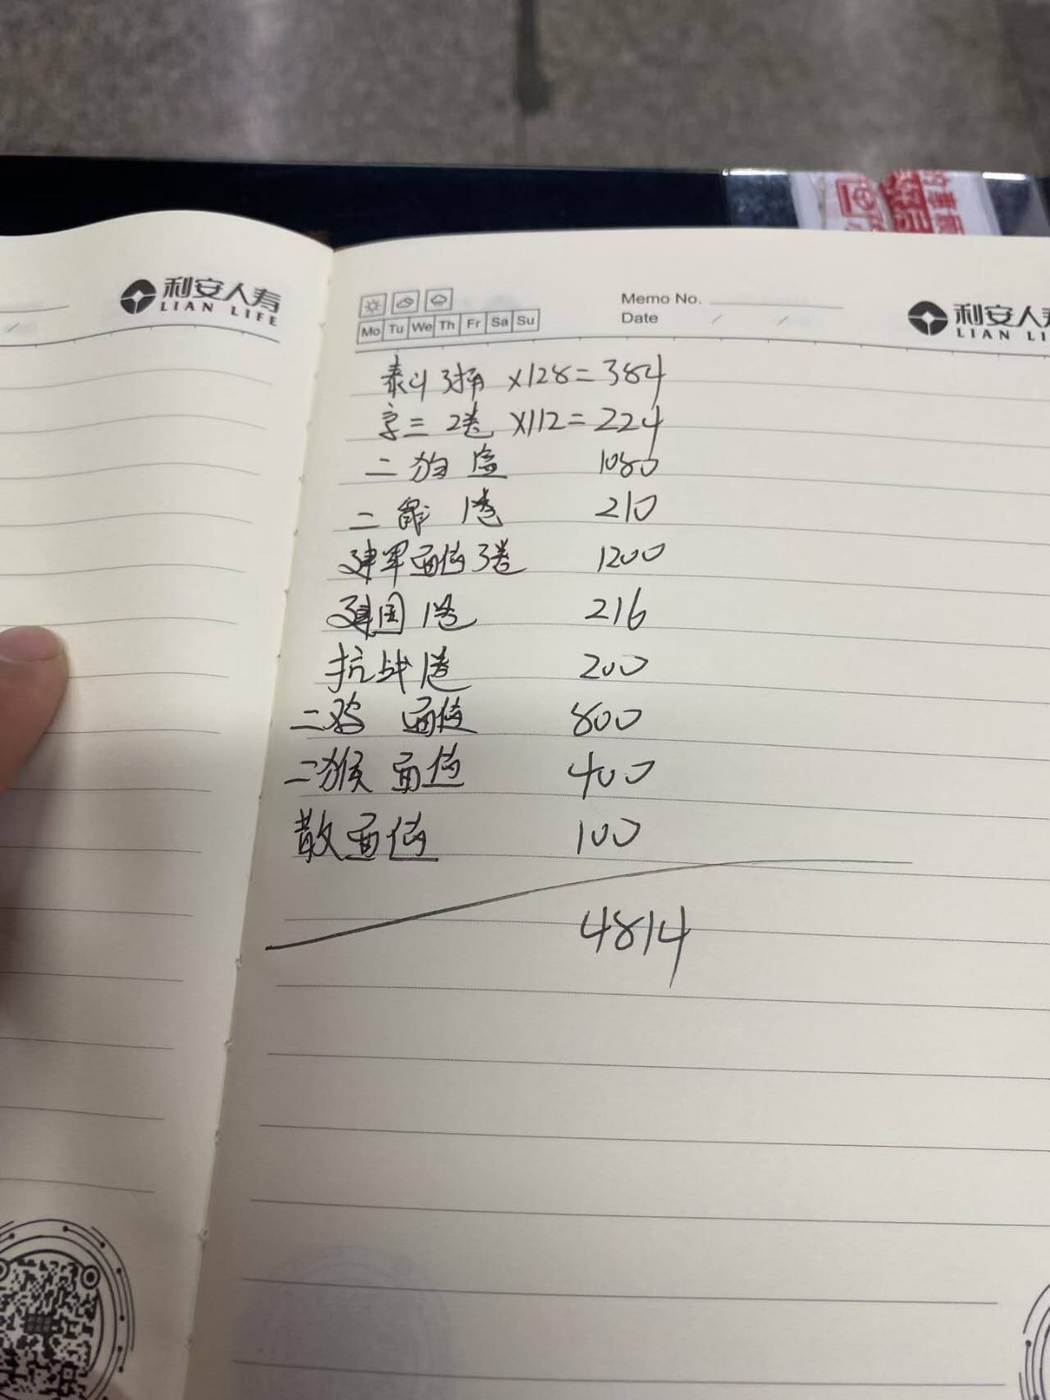 利安人寿
LIAN LIFE
Memo No.
Date / /
利安人寿
LIAN LI
Mo Tu We Th Fr Sa Su
泰山 3捅 ×128=384
字三 2卷 ×112=224
二狗 盒 1080
二龍 1卷 210
建军面值3卷 1200
建国 1卷 216
抗战1卷 200
二鸡 面值 800
二猴 面值 400
散面值 100
4814